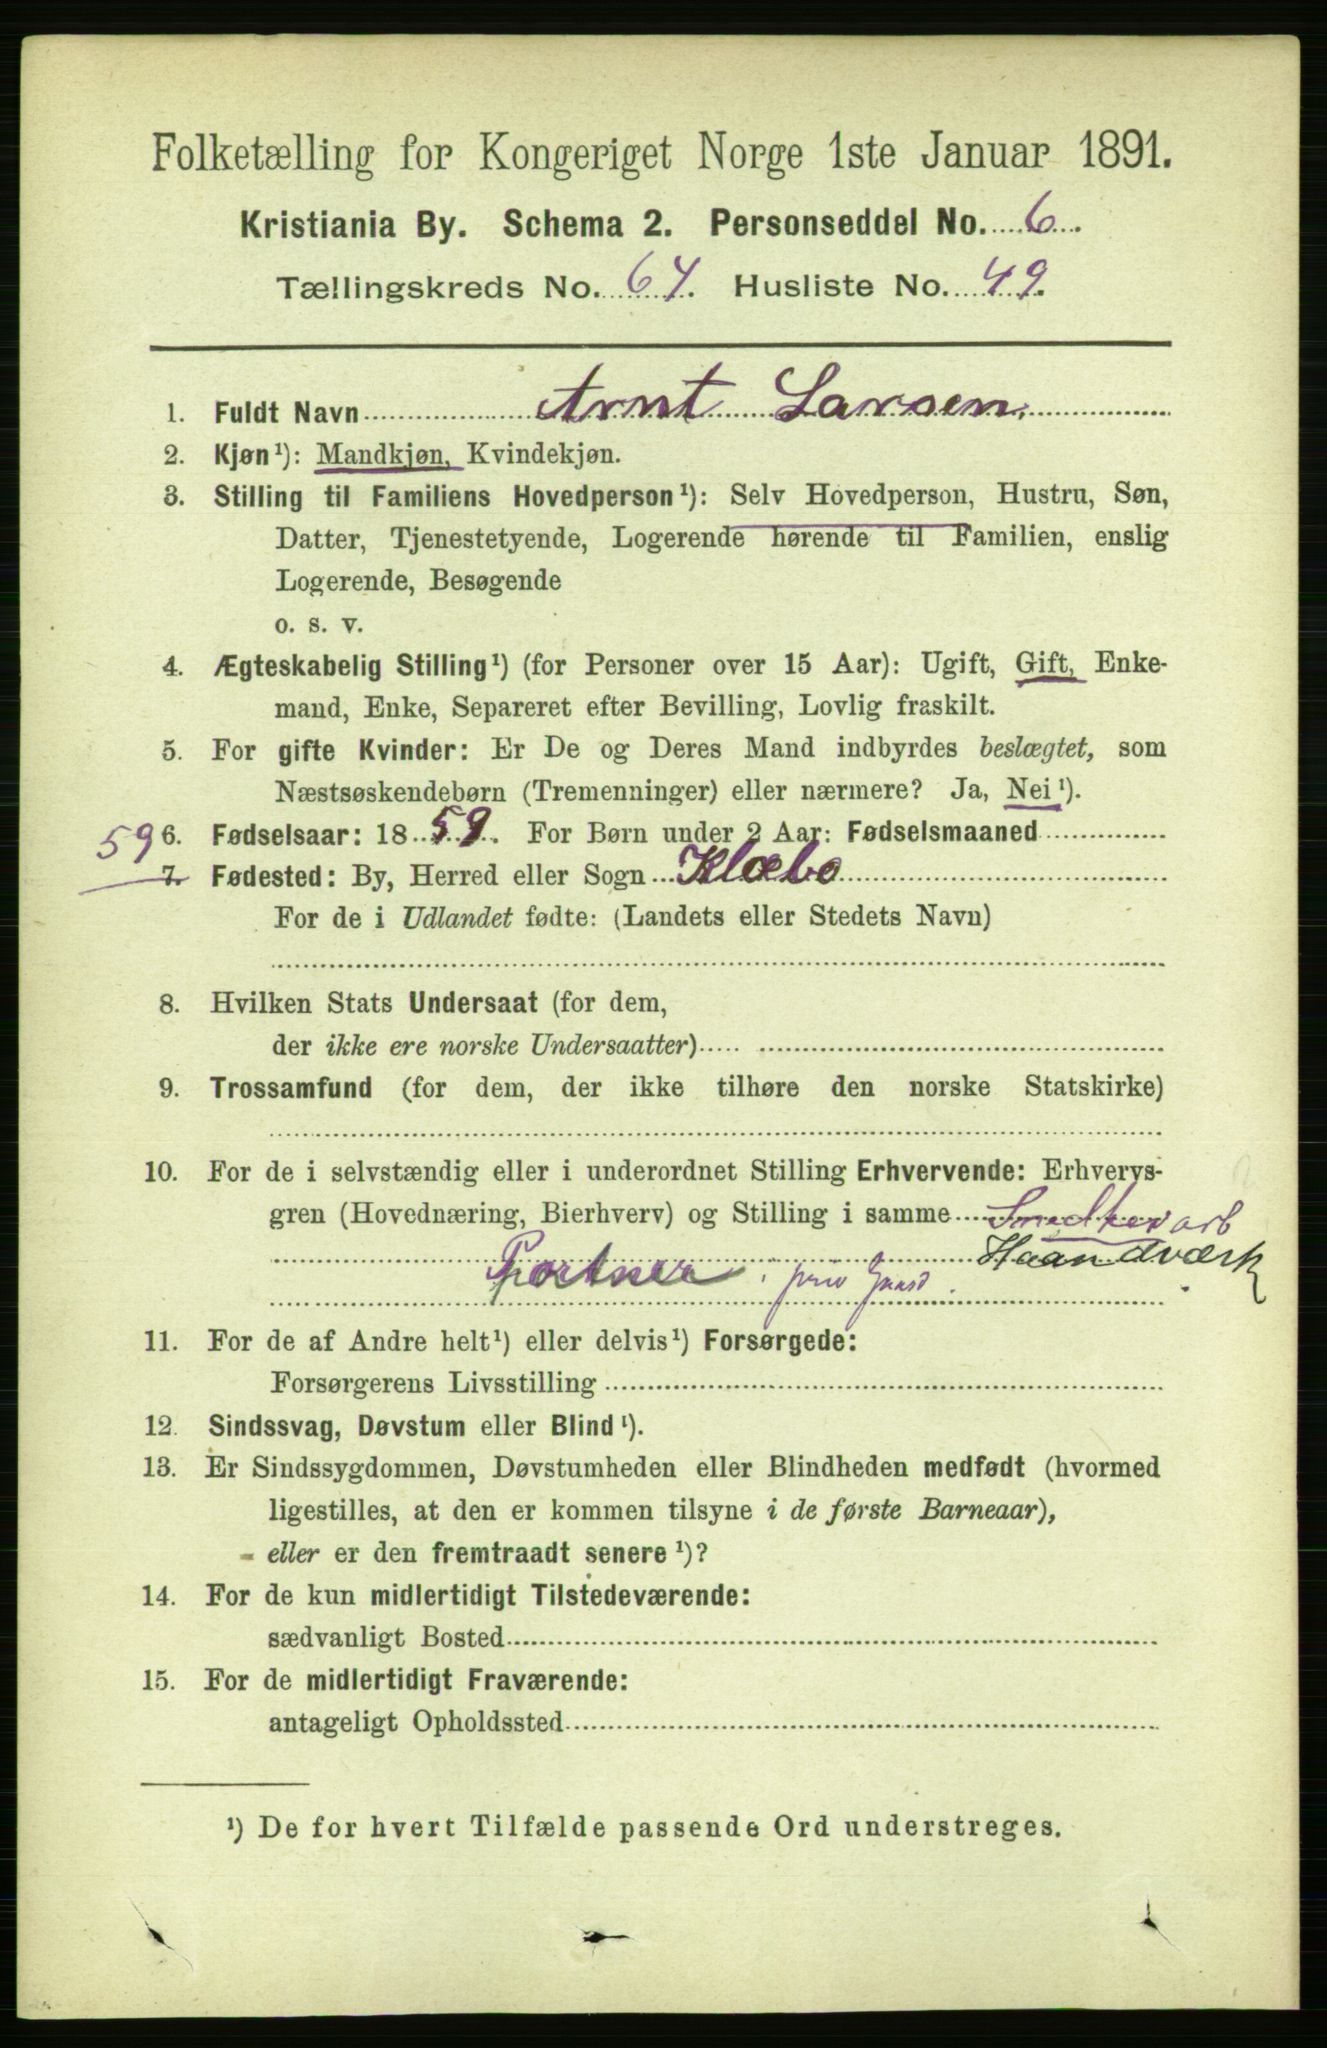 Folketælling for Kongeriget Norge 1ste Januar 1891.
Kristiania By. Schema 2. Personseddel No. 6.
Tællingskreds No. 64. Husliste No. 49.
1. Fuldt Navn Arnt Larsen.
2. Kjøn¹): Mandkjøn, Kvindekjøn.
3. Stilling til Familiens Hovedperson¹): Selv Hovedperson, Hustru, Søn,
Datter, Tjenestetyende, Logerende hørende til Familien, enslig
Logerende, Besøgende
o. s. v.
4. Ægteskabelig Stilling¹) (for Personer over 15 Aar): Ugift, Gift, Enke-
mand, Enke, Separeret efter Bevilling, Lovlig fraskilt.
5. For gifte Kvinder: Er De og Deres Mand indbyrdes beslægtet, som
Næstsøskendebørn (Tremenninger) eller nærmere? Ja, Nei¹).
59 6. Fødselsaar: 18 59. For Børn under 2 Aar: Fødselsmaaned
7. Fødested: By, Herred eller Sogn Klæbo
For de i Udlandet fødte: (Landets eller Stedets Navn)
8. Hvilken Stats Undersaat (for dem,
der ikke ere norske Undersaatter)
9. Trossamfund (for dem, der ikke tilhøre den norske Statskirke)
10. For de i selvstændig eller i underordnet Stilling Erhvervende: Erhvervs-
gren (Hovednæring, Bierhverv) og Stilling i samme Snedker arb
Haandværk
Portner i priv Gaard.
11. For de af Andre helt¹) eller delvis¹) Forsørgede:
Forsørgerens Livsstilling
12. Sindssvag, Døvstum eller Blind¹).
13. Er Sindssygdommen, Døvstumheden eller Blindheden medfødt (hvormed
ligestilles, at den er kommen tilsyne i de første Barneaar),
- eller er den fremtraadt senere¹)?
14. For de kun midlertidigt Tilstedeværende:
sædvanligt Bosted
15. For de midlertidigt Fraværende:
antageligt Opholdssted
¹) De for hvert Tilfælde passende Ord understreges.